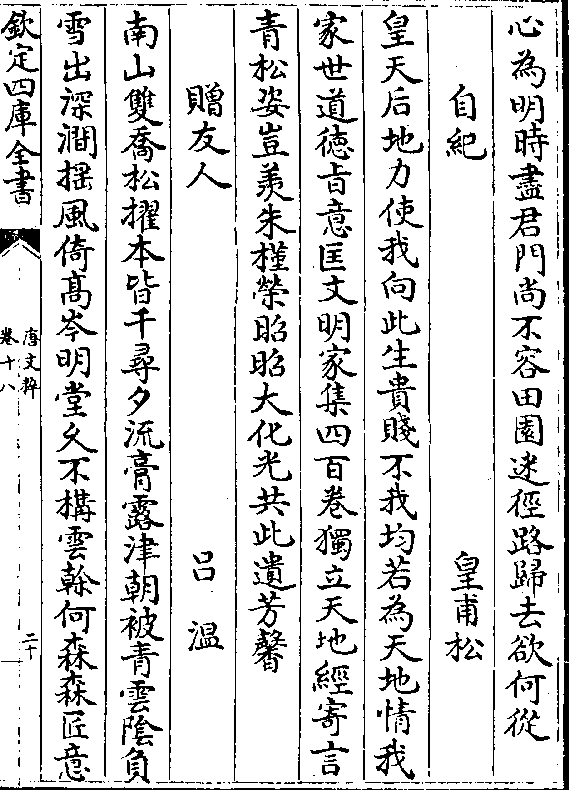 心為明時盡君門尚不容田園迷徑路歸去欲何從
自紀　皇甫松
皇天后地力使我向此生貴賤不我均若為天地情我
家世道徳旨意匡文明家集四百卷獨立天地經寄言
青松姿豈羨朱槿榮昭昭大化光共此遺芳馨
贈友人　吕温
南山雙喬松擢本皆千尋夕流膏露津朝被青雲陰負
雪出深澗揺風倚髙岑明堂久不構雲榦何森森匠意
欽定四庫全書
唐文粹
卷十八
二十